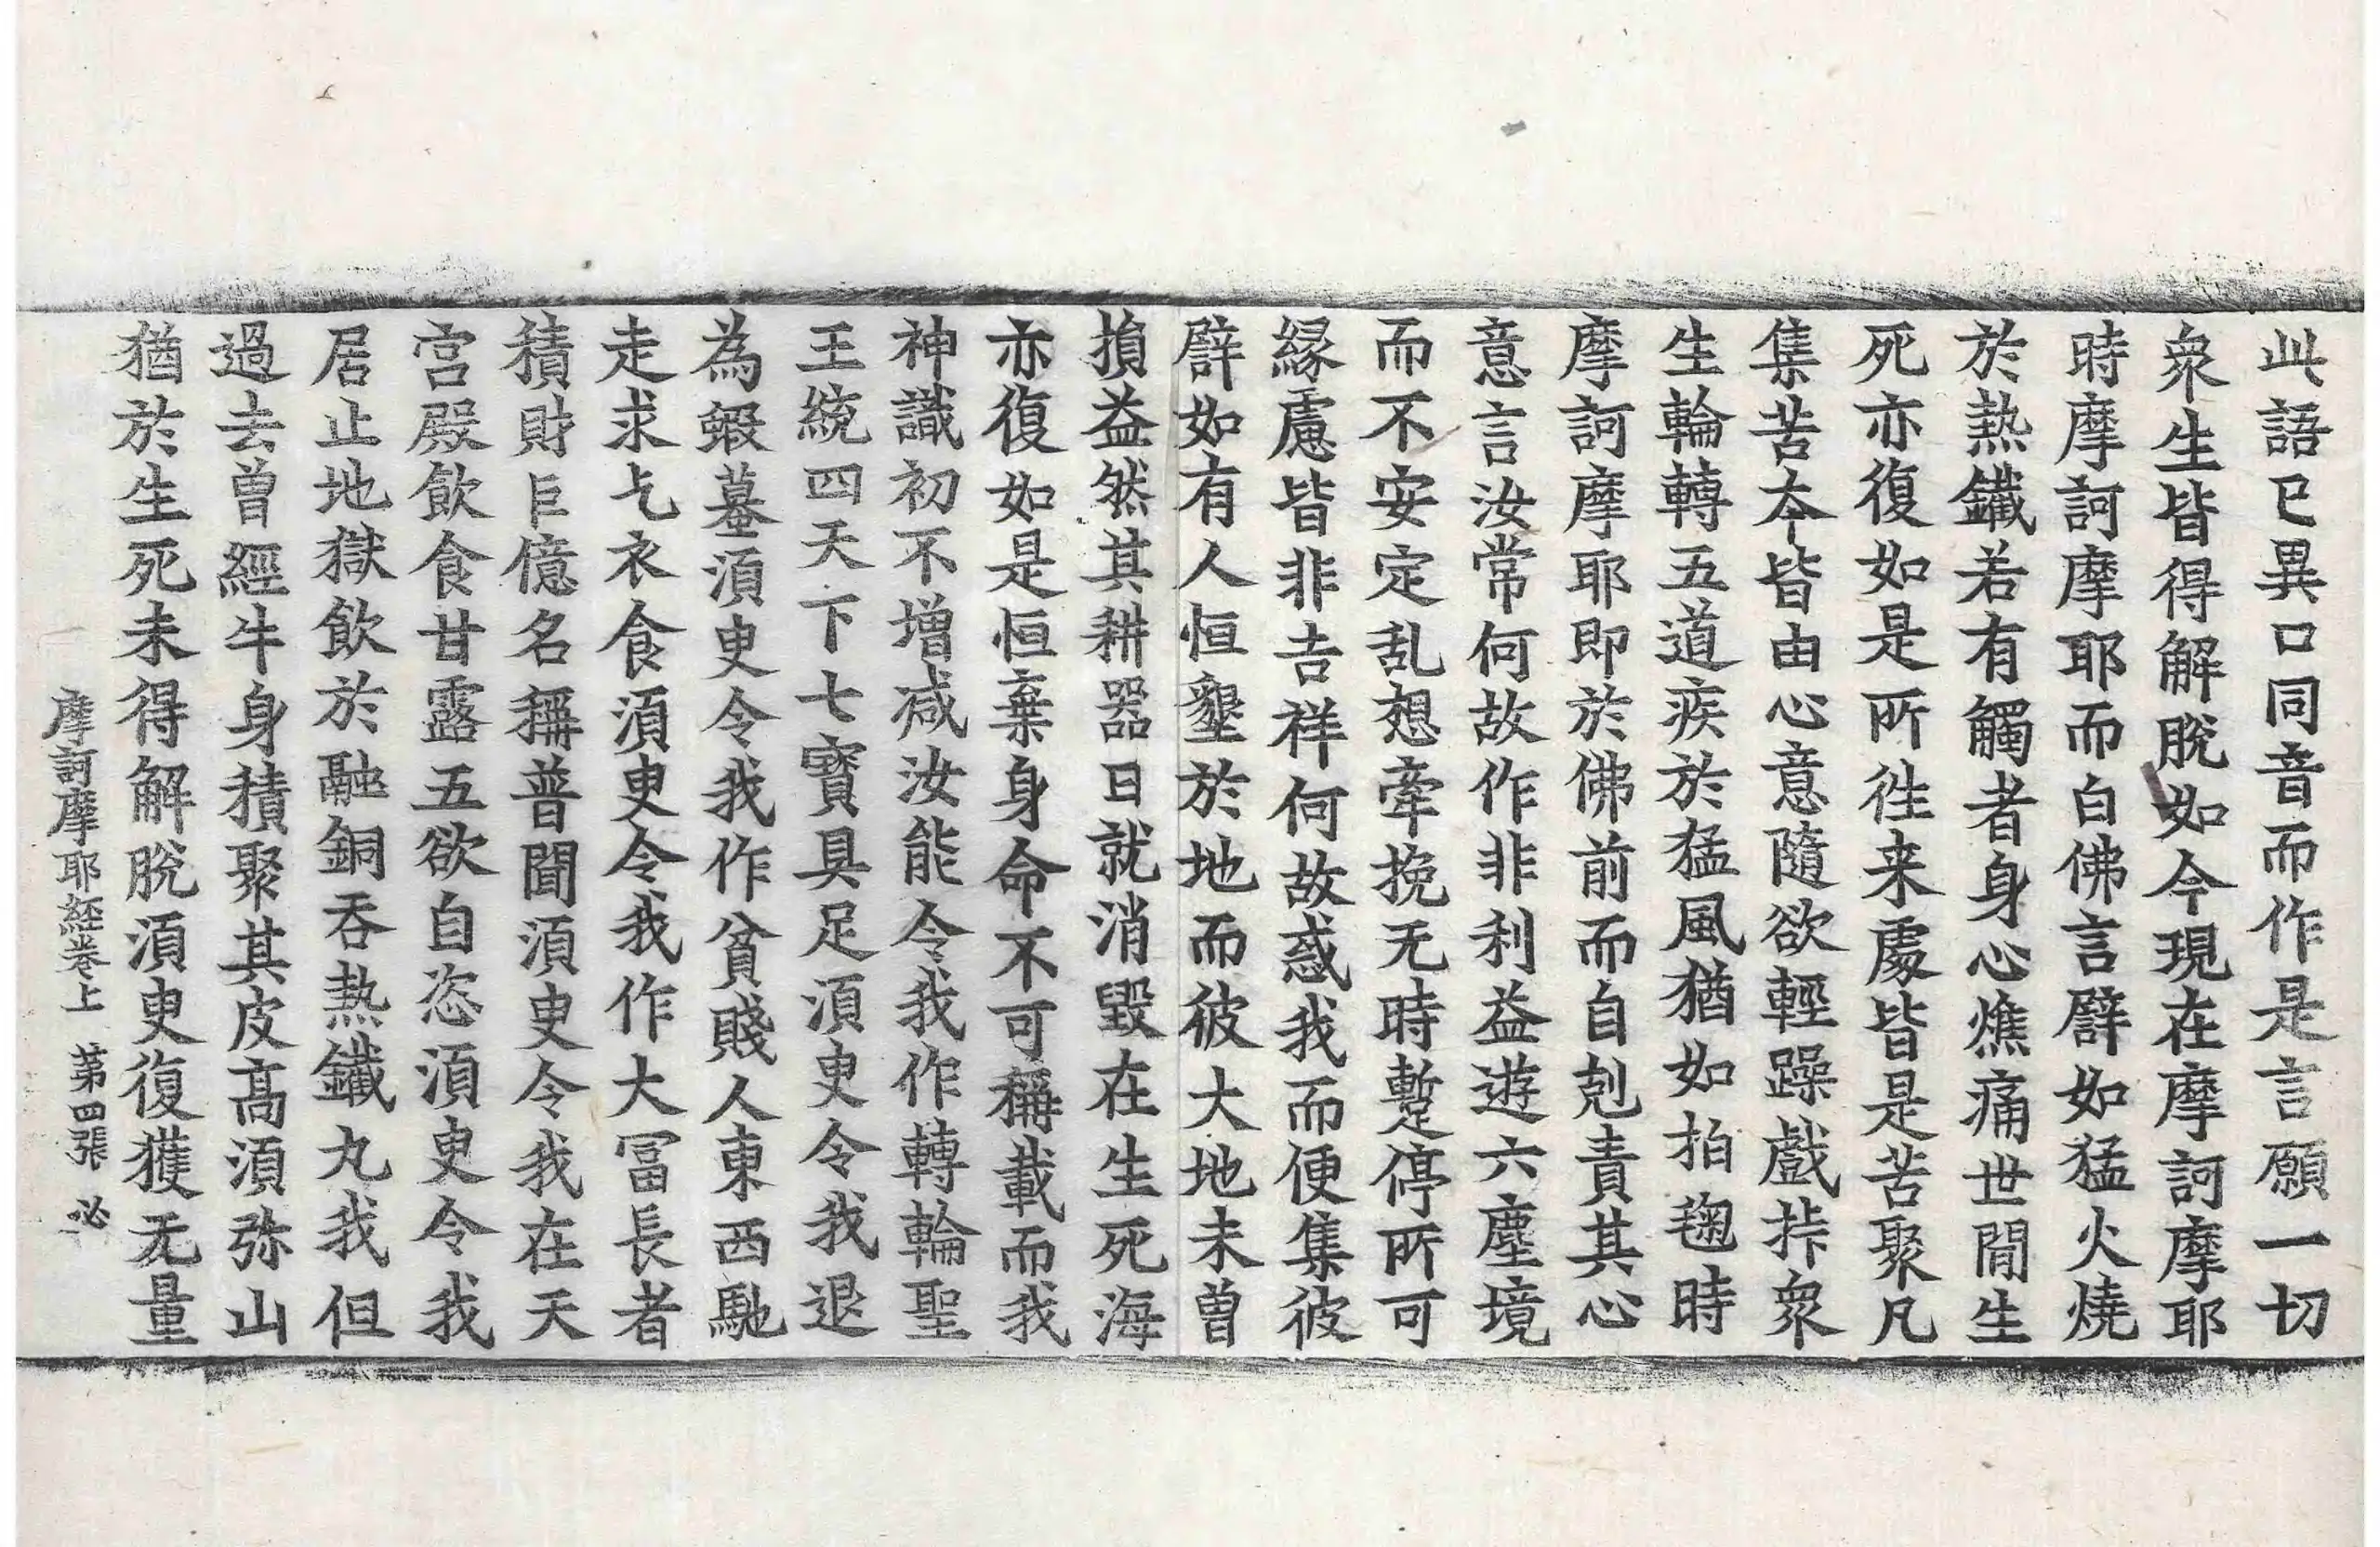 此語已異口同音而作是言願一切
衆生皆得解脫如今現在摩訶摩耶
時摩訶摩耶而白佛言譬如猛火燒
於熱鐵若有觸者身心燋痛世間生
死亦復如是所徃来處皆是苦聚凡
集苦夲皆由心意隨欲輕躁戲㧊衆
生輪轉五道疾於猛風猶如拍毱時
摩訶摩耶即於佛前而自剋責其心
意言汝常何故作非利益遊六塵境
而不安定乱想牽挽无時蹔停所可
緣慮皆非吉祥何故惑我而便集彼
譬如有人恒墾於地而彼大地未曽
損益然其耕器日就消毀在生死海
亦復如是恒棄身命不可稱載而我
神識初不增减汝能令我作轉輪聖
王統四天下七寶具足湏臾令我退
為蝦蟇湏臾令我作貧賤人東西馳
走求乞衣食湏臾令我作大冨長者
積財巨億名稱普聞湏臾令我在天
宫殿飲食甘露五欲自恣湏臾令我
居止地獄飲於融銅吞熱鐵丸我但
過去曽經牛身積聚其皮髙湏弥山
猶於生死未得解脫湏臾復獲无量
摩訶摩耶経卷上 第四張 必